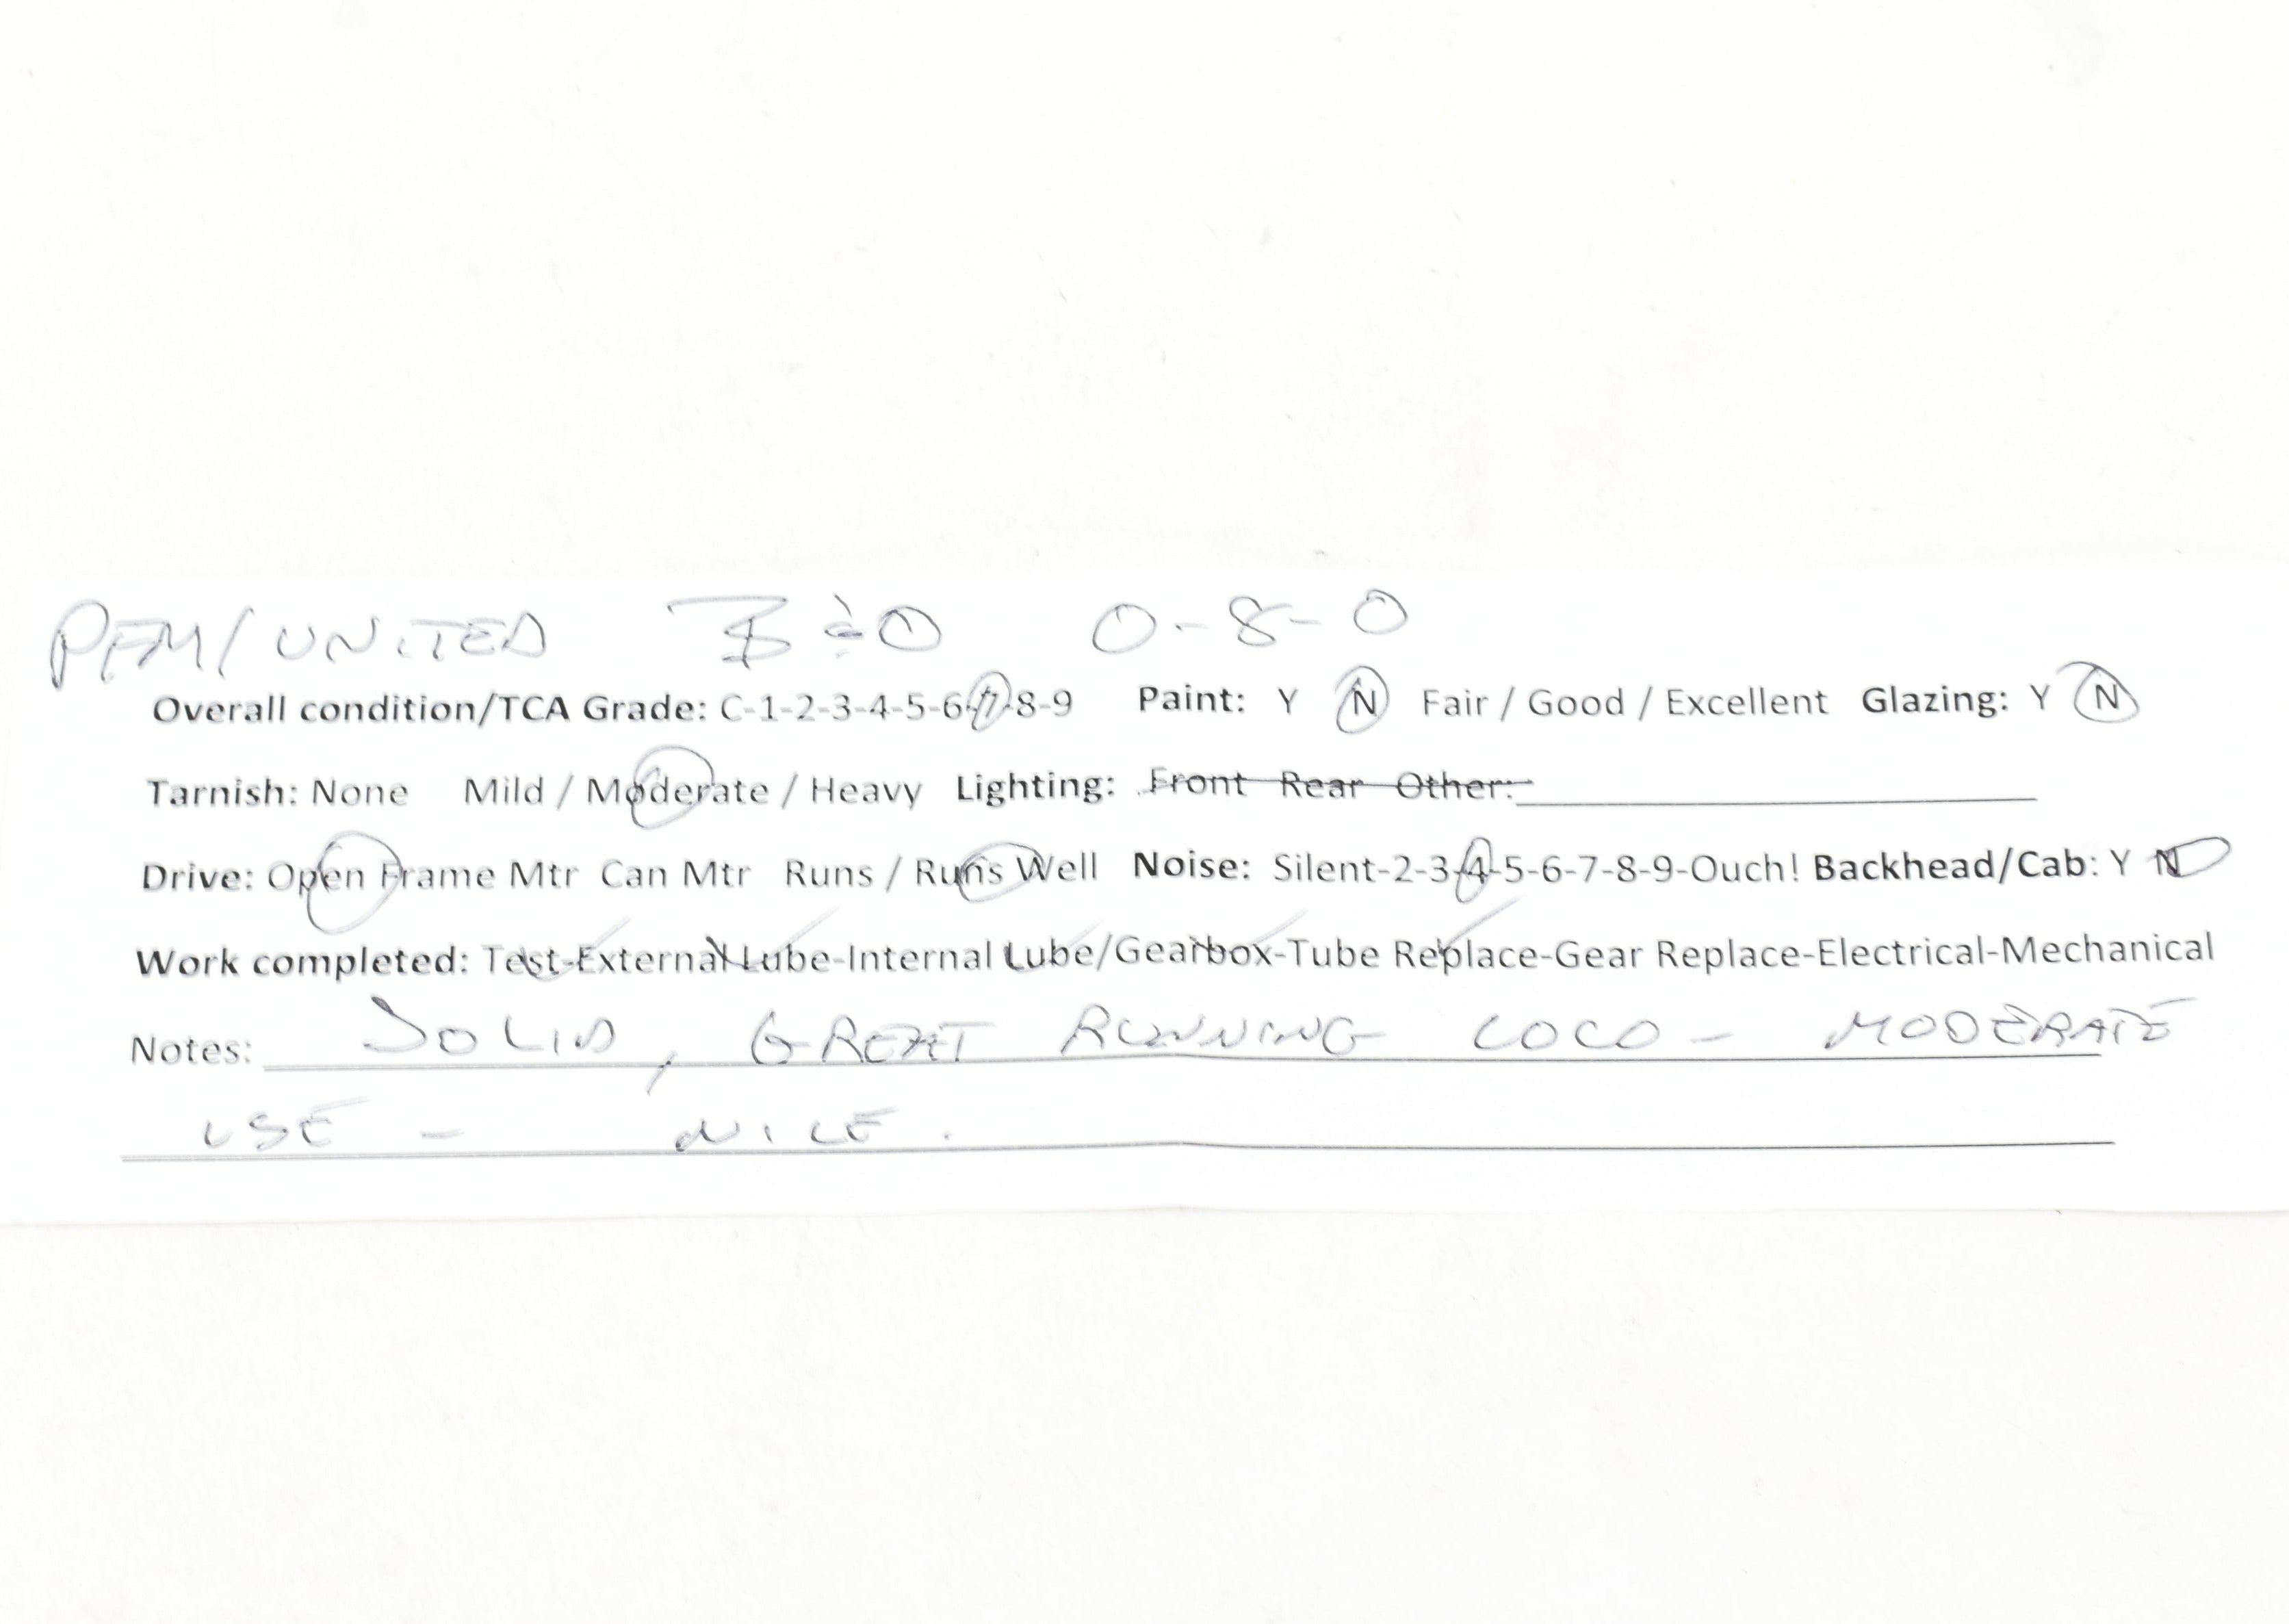 PFM/UNITED B&O 0-8-0
Overall condition/TCA Grade: C-1-2-3-4-5-6-7-8-9 Paint: Y N Fair / Good / Excellent Glazing: Y N
Tarnish: None Mild / Moderate / Heavy Lighting: Front Rear Other:
Drive: Open Frame Mtr Can Mtr Runs / Runs Well Noise: Silent-2-3-4-5-6-7-8-9-Ouch! Backhead/Cab: Y N
Work completed: Test-External Lube-Internal Lube/Gearbox-Tube Replace-Gear Replace-Electrical-Mechanical
Notes: SOLID, GREAT RUNNING LOCO - MODERATE
USE - NICE.